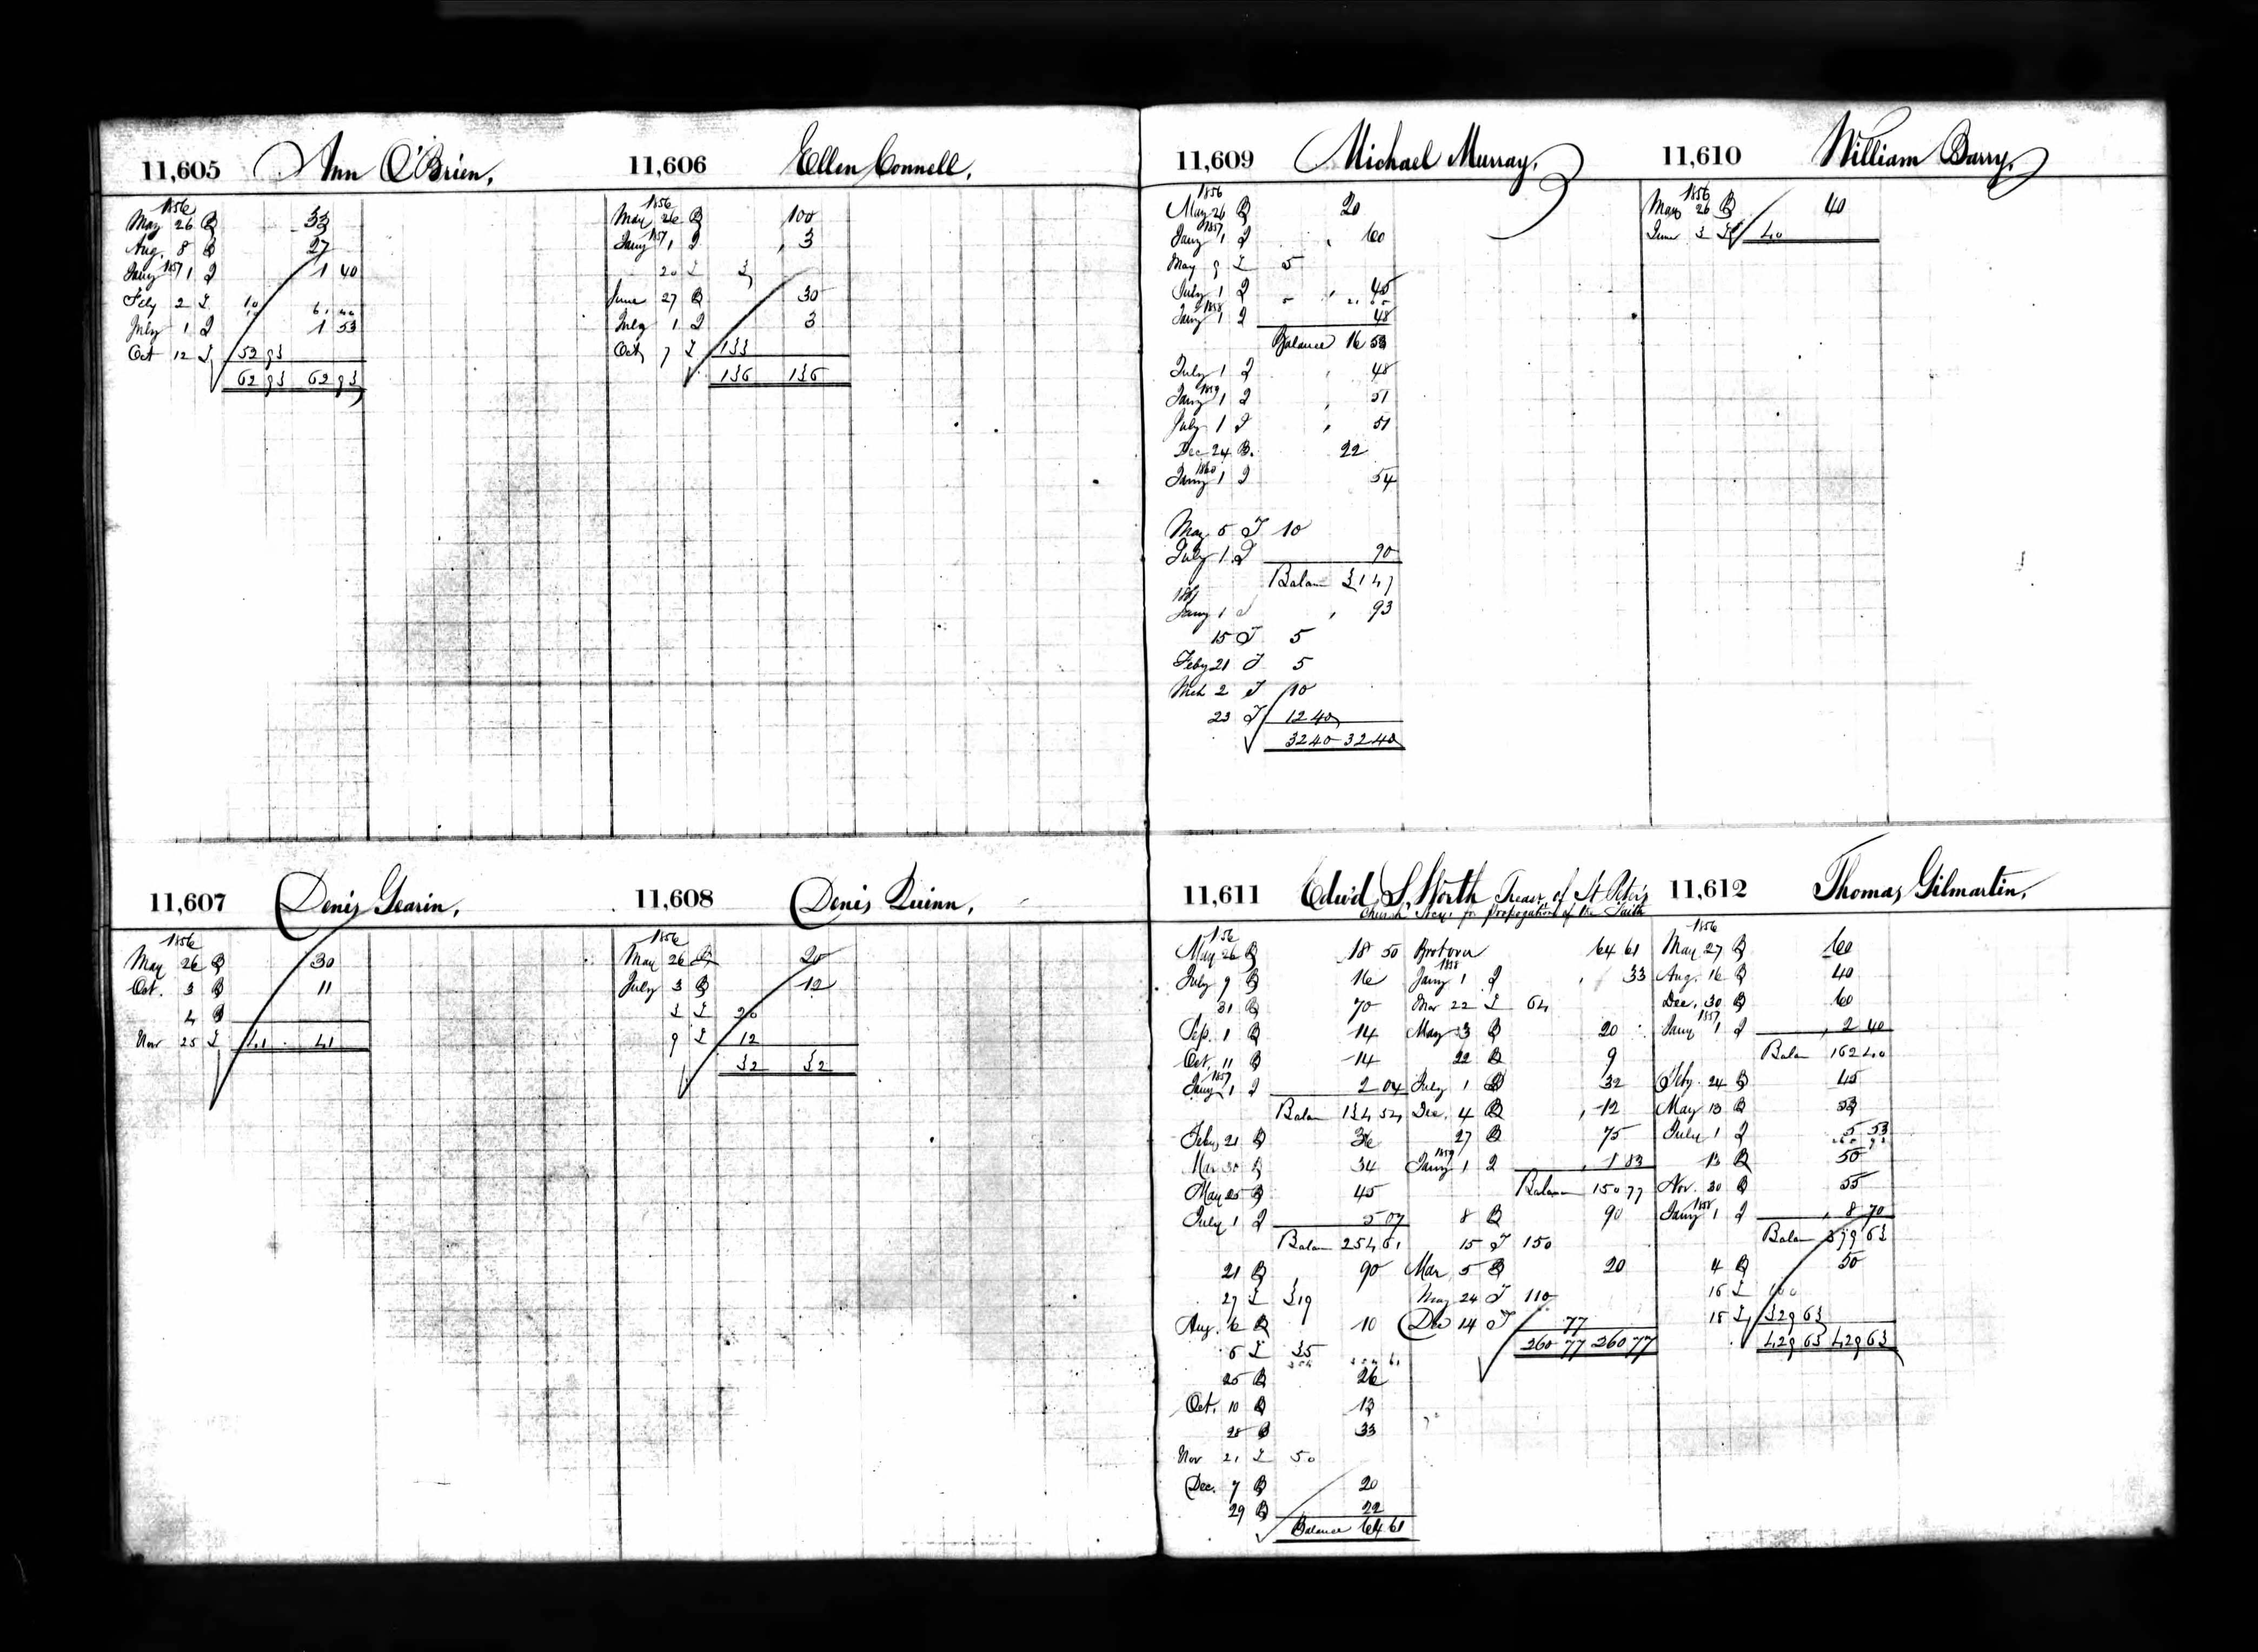 11,605 Ann O'Brien,
1856
May 26 B 33
Aug. 8 B 27
Jany 1857 1 I 1 40
Feby 2 I 10
July 1 I 1 53
Oct 12 I 52 93
62 93 62 93
11,606 Ellen Connell,
1856
May 26 B 100
Jany 1857 1 I , 3
20 I 3
June 27 B 30
July 1 I 3
Oct 7 I 133
136 136
11,607 Denis Gearin,
1856
May 26 B 30
Oct. 3 B 11
4 B
Nov 25 I 41 41
11,608 Denis Quinn,
1856
May 26 B 20
July 3 B 12
3 I 20
9 I 12
32 32
11,609 Michael Murray,
1856
May 26 B 20
Jany 1857 1 I , 60
May 9 I 5
July 1 I , 45
Jany 1858 1 I 48
Balance 16 53
July 1 I , 48
Jany 1859 1 I , 51
July 1 I , 51
Dec 24 B. 22
Jany 1860 1 I 54
May 5 I 10
July 1 I 90
Balan 31 47
1861
Jany 1 I , 93
15 I 5
Feby 21 I 5
Mch 2 I 10
23 I 12 40
32 40 32 40
11,610 William Barry,
1856
May 26 B 40
June 3 I 40
11,611 Edw'd S. Worth Treas. of St Peter's
Church Socy. for Propogation of the Faith
1856
May 26 B 18 50
July 9 B 16
31 B 70
Sep. 1 B 14
Oct. 11 B 14
Jany 1857 1 I 2 04
Balan 134 54
Feby 21 B 36
Mar 30 B 34
May 25 B 45
July 1 I 5 07
Balan 254 61
21 B 90
27 I 319
Aug. 6 B 10
6 I 35
25 B 26
Oct. 10 B 13
28 B 33
Nov 21 I 50
Dec. 7 B 20
29 B 22
Balance 64 61
Brot over 64 61
Jany 1858 1 I , 33
Mar 22 I 64
May 3 B 20
22 B 9
July 1 B 32
Dec. 4 B , 12
27 B 75
Jany 1859 1 I , 1 83
Balance 150 77
8 B 90
15 I 150
Mar 5 B 20
May 24 I 110
Dec 14 I 77
260 77 260 77
11,612 Thomas Gilmartin,
1856
May 27 B 60
Aug. 16 B 40
Dec. 30 B 60
Jany 1857 1 I , 2 40
Balan 162 40
Feby. 24 B 45
May 13 B 53
July 1 I 5 53
13 B 50
Nov. 30 B 55
Jany 1858 1 I , 8 70
Balan 379 63
4 B 50
16 I 100
18 I 329 63
429 63 429 63